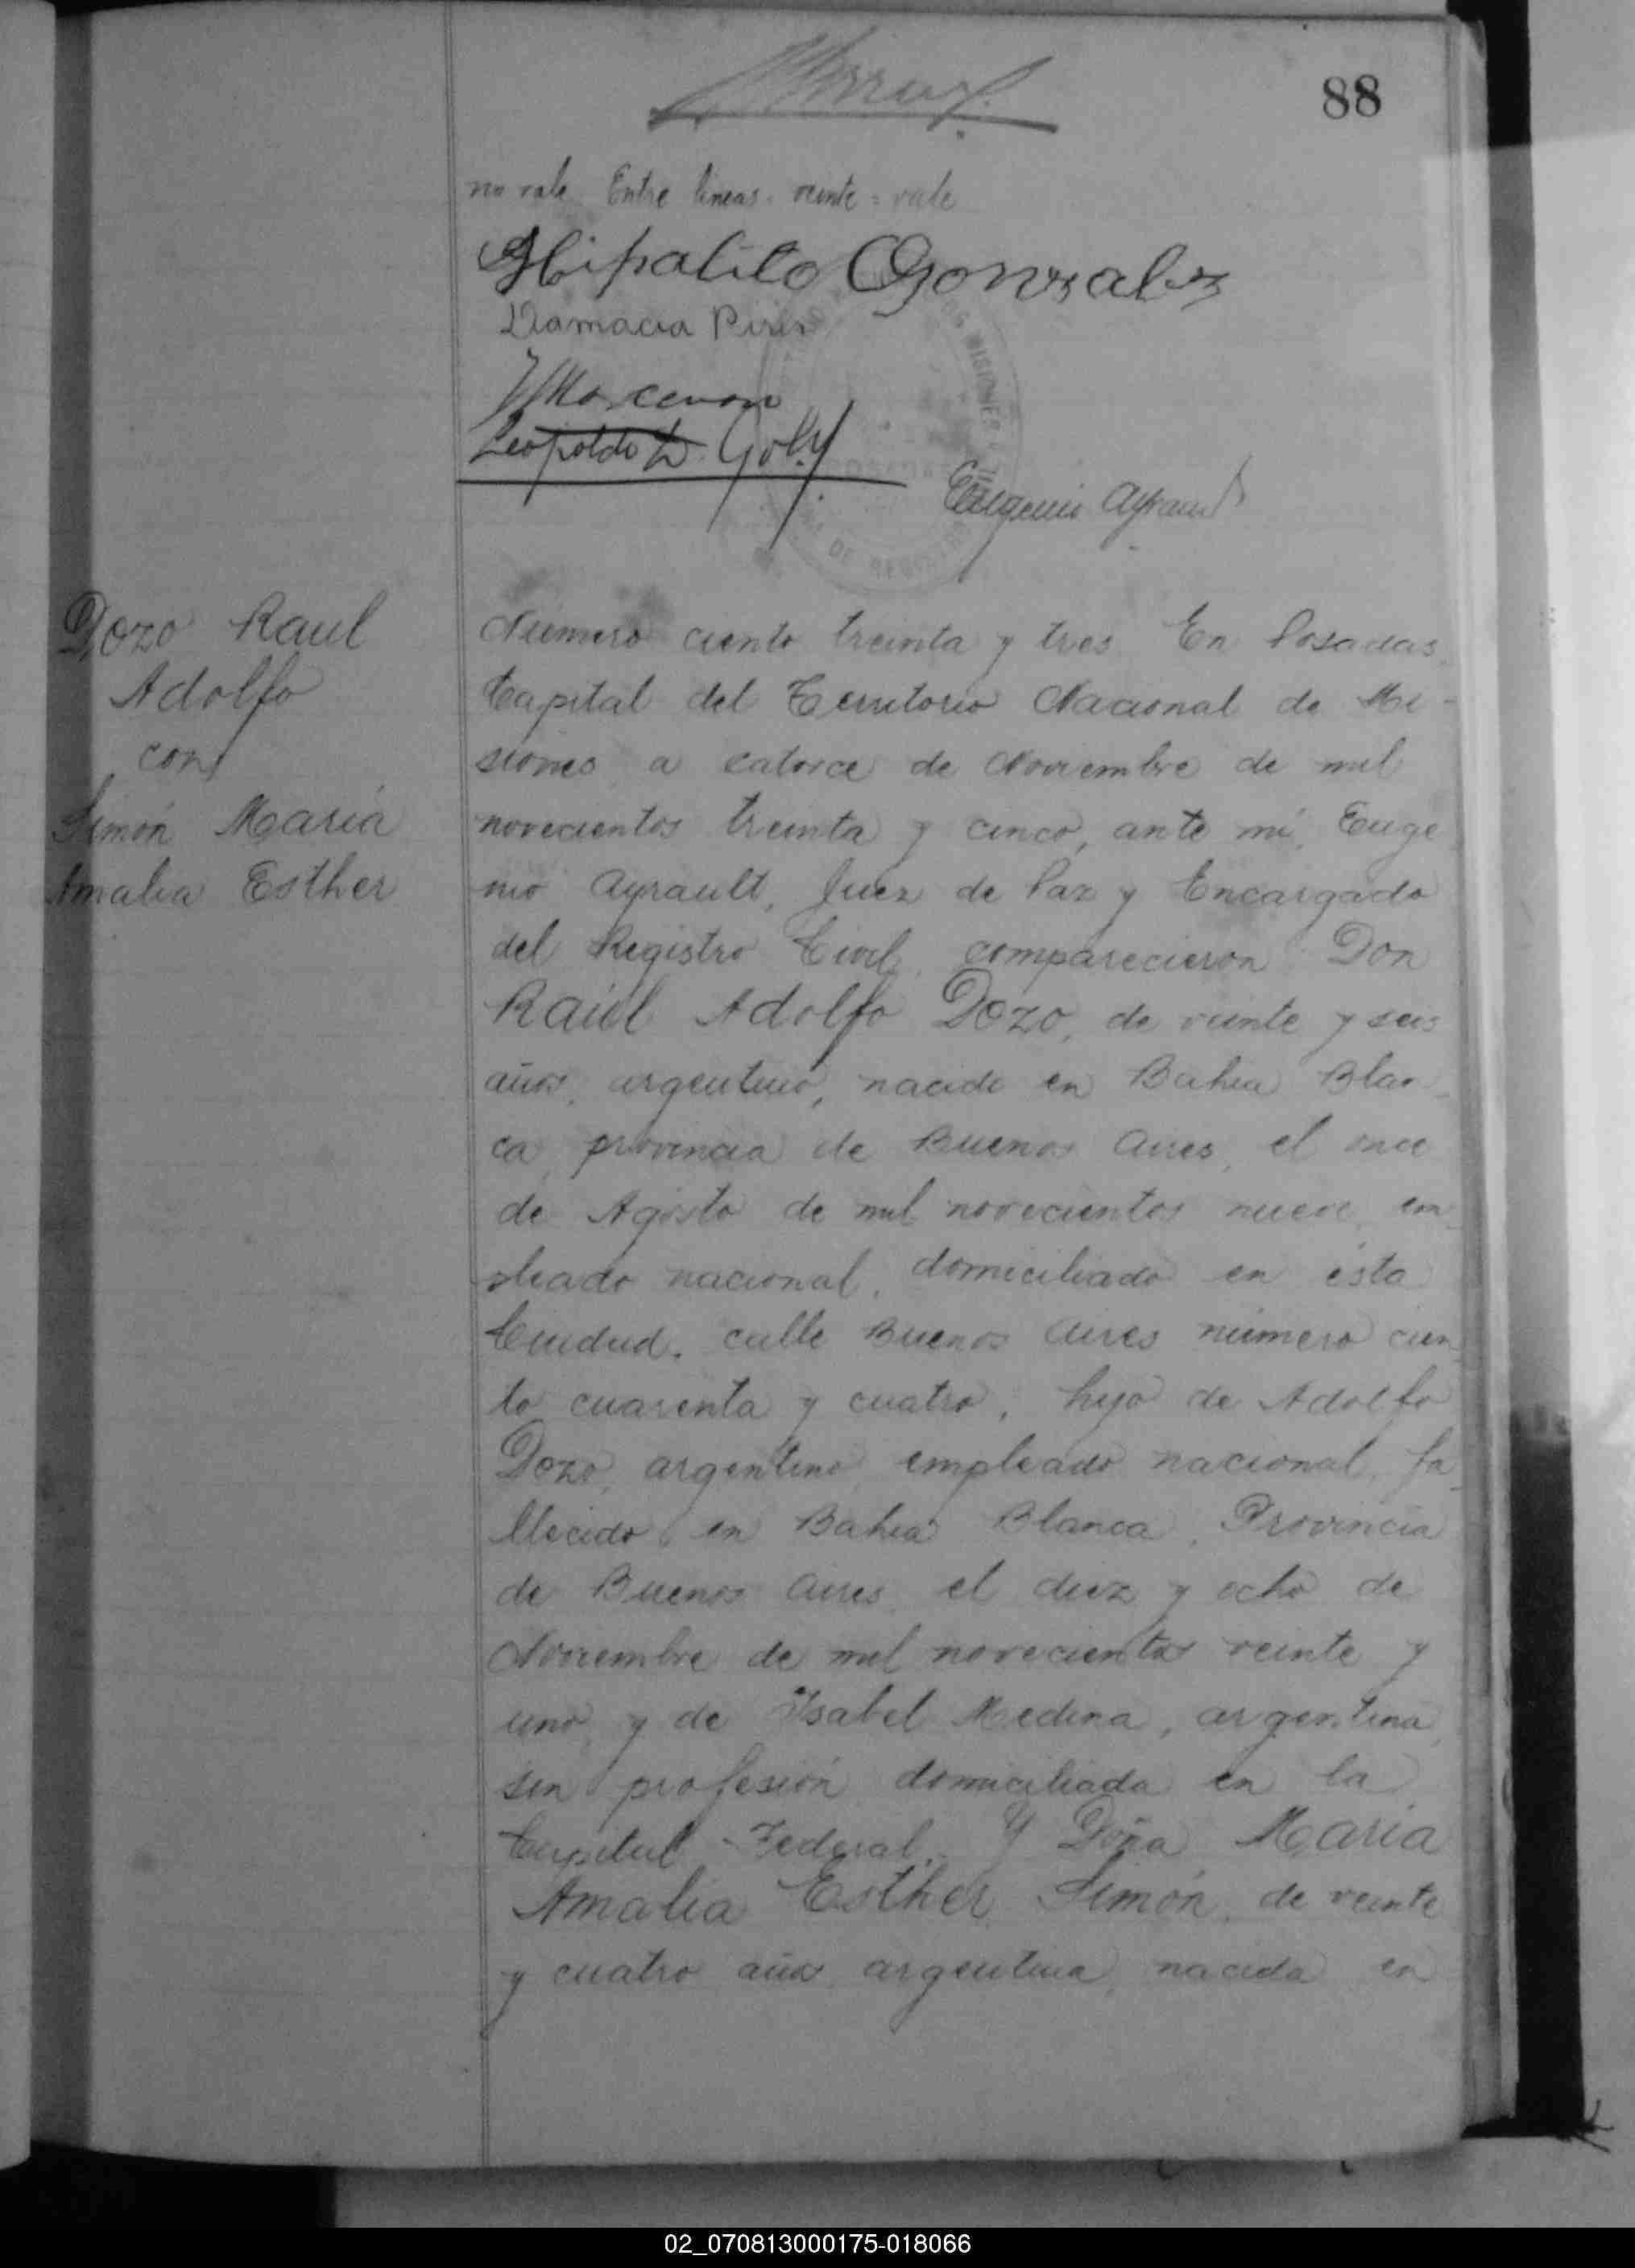 88
no vale. Entre lineas. veinte = vale
Hipolito Gonzalez
Damacia Pires
Leopoldo L. Goly
Eugenio Ayrault
Dozo Raul
Adolfo
con
Simón María
Amalia Esther
Número ciento treinta y tres En Posadas,
Capital del Territorio Nacional de Mi-
siones a catorce de Noviembre de mil
novecientos treinta y cinco, ante mi, Euge
nio Ayrault, Juez de Paz y Encargado
del Registro Civil, comparecieron: Don
Raúl Adolfo Dozo, de veinte y seis
años, argentino, nacido en Bahia Blan-
ca, provincia de Buenos Aires, el once
de Agosto de mil novecientos nueve, em-
pleado nacional, domiciliado en ésta
Ciudad, calle Buenos Aires número cien-
to cuarenta y cuatro, hijo de Adolfo
Dozo, argentino, empleado nacional, fa-
llecido en Bahia Blanca, Provincia
de Buenos Aires, el diez y ocho de
Noviembre de mil novecientos veinte y
uno, y de Isabel Medina, argentina,
sin profesión domiciliada en la
Capital Federal. Y Doña María
Amalia Esther Simón, de veinte
y cuatro años argentina, nacida en
02_070813000175-018066